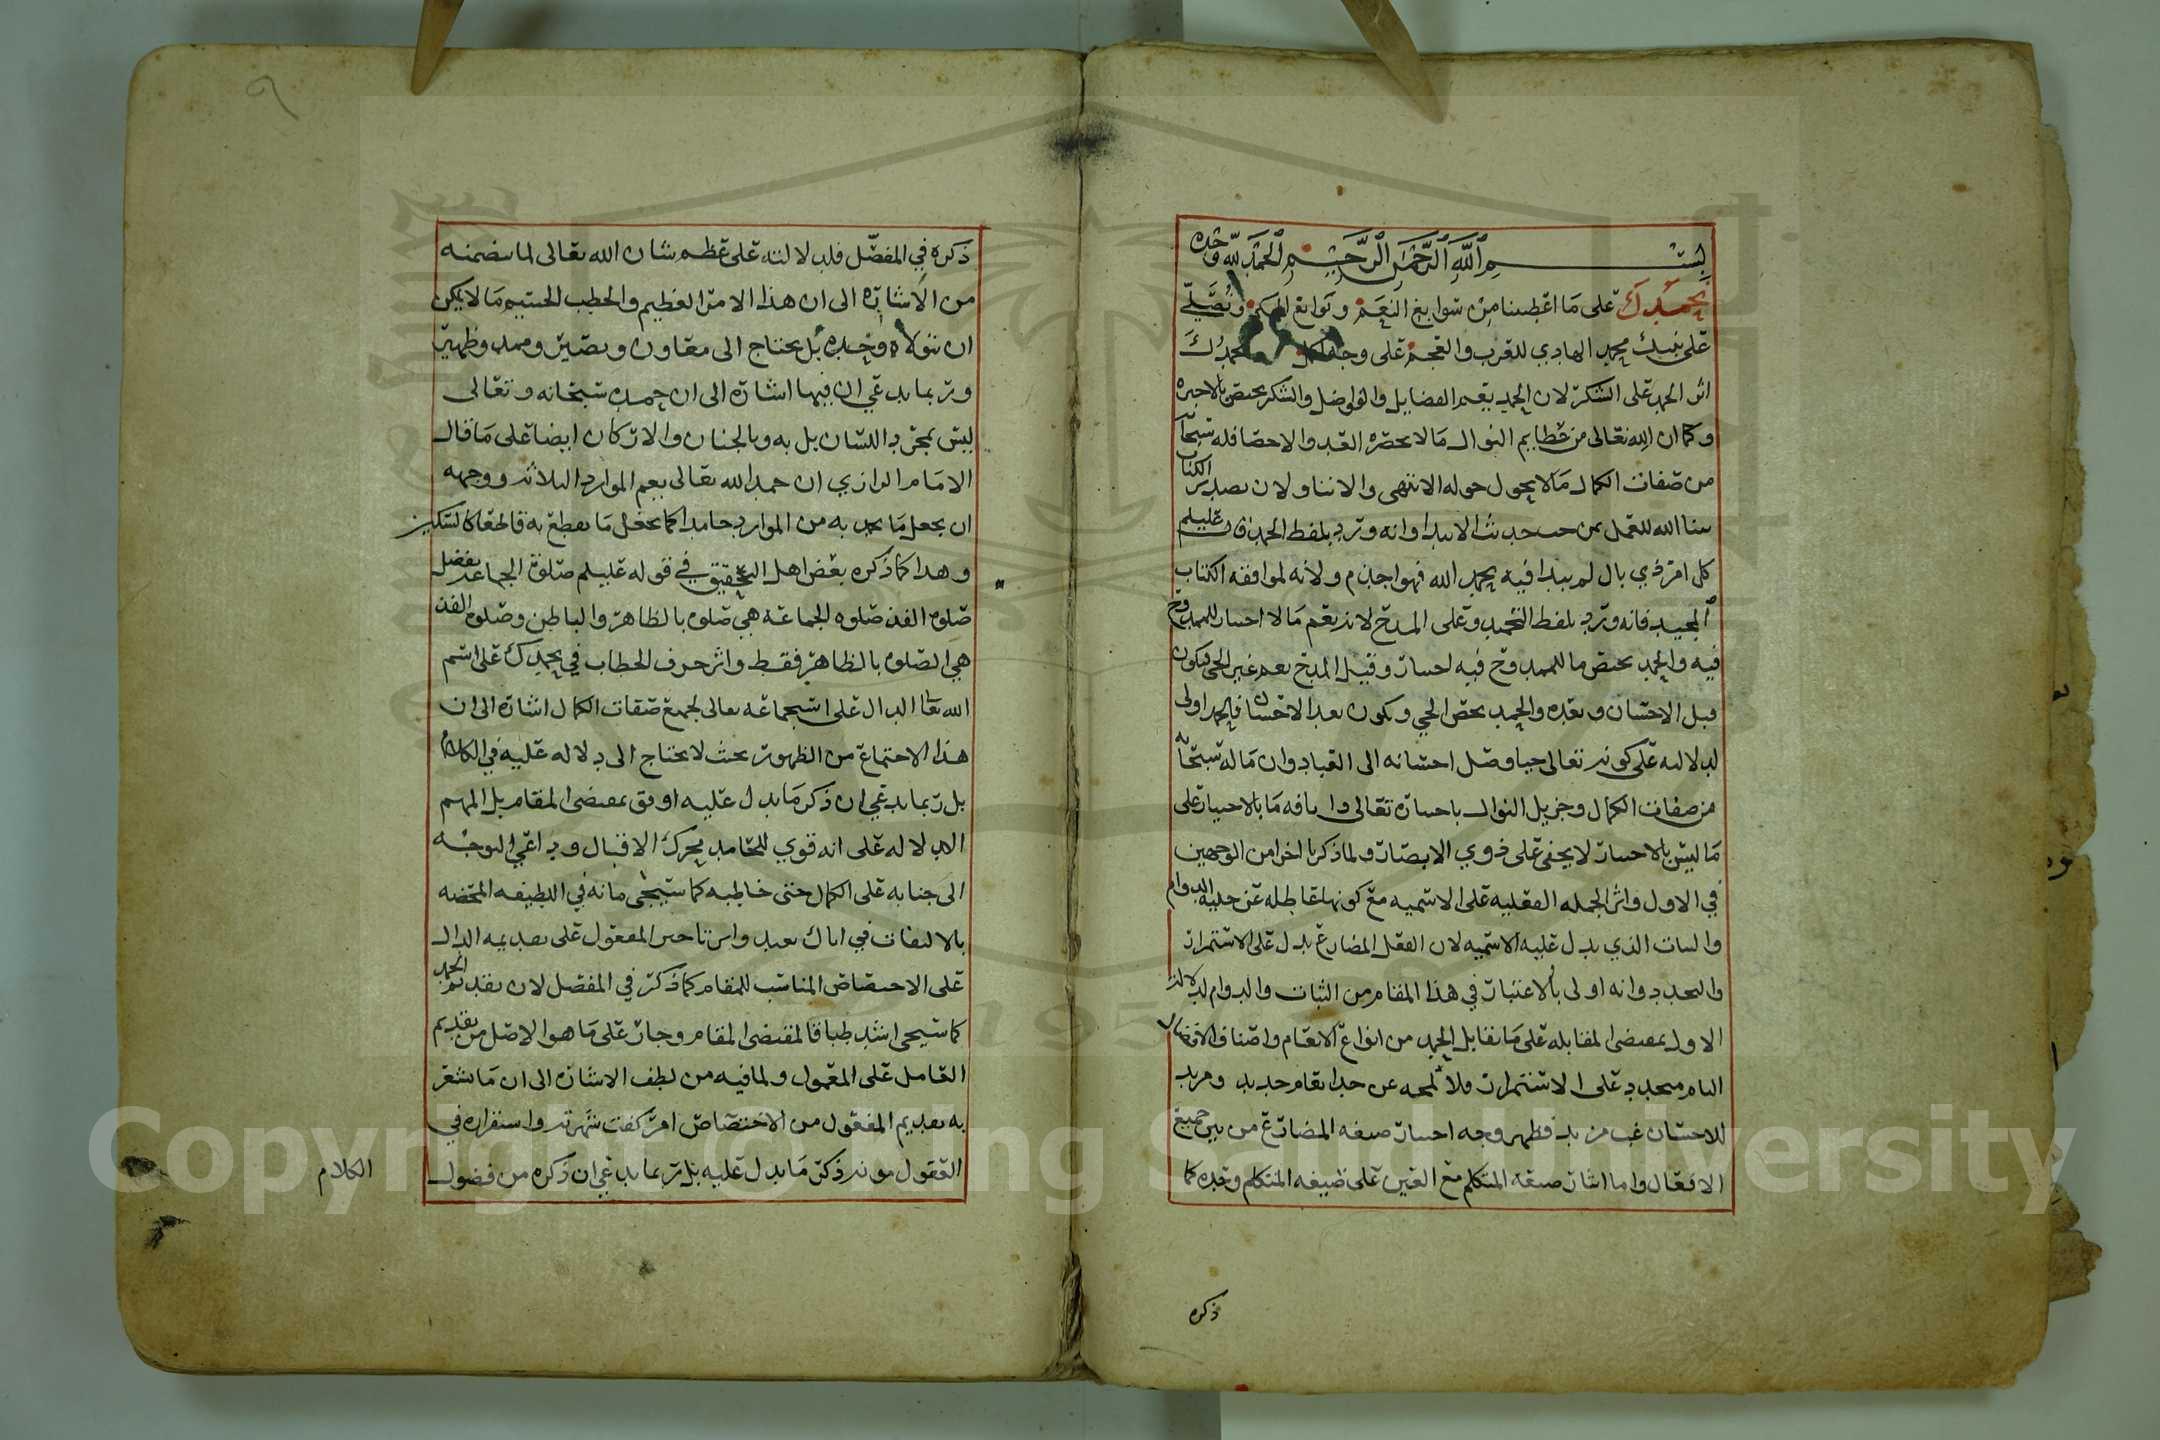 بسم الله الرحمن الرحيم الحمد لله وحده
نحمدك على ما اعطيتنا من سوابغ النعم وتوابع الحكم ونصلي
على نبيك محمد الهادي للعرب والعجم على وجه نحمدك
اثر الحمد على الشكر لان الحمد يعم الفضايل والفواضل والشكر يختص بالاخيره
وكما ان لله تعالى من خطايم النوال ما لا يحصره العد والاحصا فله سبحانه
من صفات الكمال ما لا يحول حوله الانتهى والانتا ولان تصدير الكتاب
بثنا الله للعمل بمن حديث الابتدا وانه ورد بلفظ الحمد قال عليلم
كل امر ذي بال لم يبدا فيه بحمد الله فهو اجذم ولانه لموافقه الكتاب
المجيد فانه ورد بلفظ التحميد وعلى المدح لانه يعم ما لا احسان للممدوح
فيه والحمد يختص ما للممدوح فيه احسان وقيل المدح يعم غير الحي فيكون
قبل الاحسان وبعده والحمد يخص الحي ويكون بعد الاحسان فالحمد اولى
لدلالته على كونه تعالى حيا وصل احسانه الى العباد وان ما له سبحانه
من صفات الكمال وجزيل النوال باحسانه تعالى ما بالاحسان على
ما ليس بالاحسان لا يخفى على ذوي الابصار ولما ذكرنا اخرا من الوجهين
في الاول واثر الجمله الفعليه على الاسميه مع كونها عاطله عن حليه الدوام
والثبات الذي يدل عليه الاسميه لان الفعل المضارع يدل على الاستمرار
والتجدد وانه اولى بالاعتبار في هذا المقام من الثبات والدوام لدلالة
الاول بمقتضى المقابله على ما يقابل الحمد من انواع الانعام واصناف الافضال
التام متجدد على الاستمرار فلا لمحه عن حد انعام جديد ومزيد
للاحسان غب مزيد فظهر وجه احسان صيغه المضارع من بين جميع
الافعال واما اشار صيغه المتكلم مع الغير على صيغه المتكلم وحده كما
ذكره
ذكره في المفضل فلدلالته على عظم شان الله تعالى لما يتضمنه
من الاشاره الى ان هذا الامر العظيم والخطب الجسيم ما لا يمكن
ان نتولاه وحده بل يحتاج الى معاون ونصير وممد وظهير
وربما يدعي ان فيها اشارة الى ان حمده سبحانه وتعالى
ليس بمجرد اللسان بل به وبالجنان والاركان ايضا على ما قال
الامام الرازي ان حمد الله تعالى يعم الموارد الثلاثه ووجهه
ان يجعل ما يحمد به من الموارد حامدا كما يجعل ما يقطع به قاطعا كالسكين
وهذا كما ذكره بعض اهل التحقيق في قوله عليلم صلوة الجماعه بفضل
صلوة الفذ صلوه الجماعه هي صلوه بالظاهر والباطن وصلوه الفذ
هي الصلوه بالظاهر فقط واثر حرف الخطاب في نحمدك على اسم
الله تعا الدال على استجماعه تعالى لجميع صفات الكمال اشاره الى ان
هذا الاجتماع من الظهور بحيث لا يحتاج الى دلاله عليه في الكلام
بل ربما يدعي ان ذكر ما يدل عليه اوفق بمقتضى المقام بل المهم
الدلاله على انه قوي للحامد محرك الاقبال وداعي التوجه
الى جنابه على الكمال حتى خاطبه كما سيجى مانه في اللطيفه المختصه
بالالتفات في اياك نعبد واثر تاخير المفعول على تقديمه الدال
على الاختصاص المناسب للمقام كما ذكر في المفصل لان تقديم الحمد
كما سيجى اشد طباقا لمقتضى المقام وجار على ما هو الاصل من تقديم
العامل على المعمول ولما فيه من لطف الاشاره الى ان ما يشعر
به تقديم المفعول من الاختصاص امر كفت شهرته واستقراره في
العقول مونه ذكر ما يدل عليه بل ربما يدعي ان ذكره من فضول
الكلام
Copyright © King Saud University